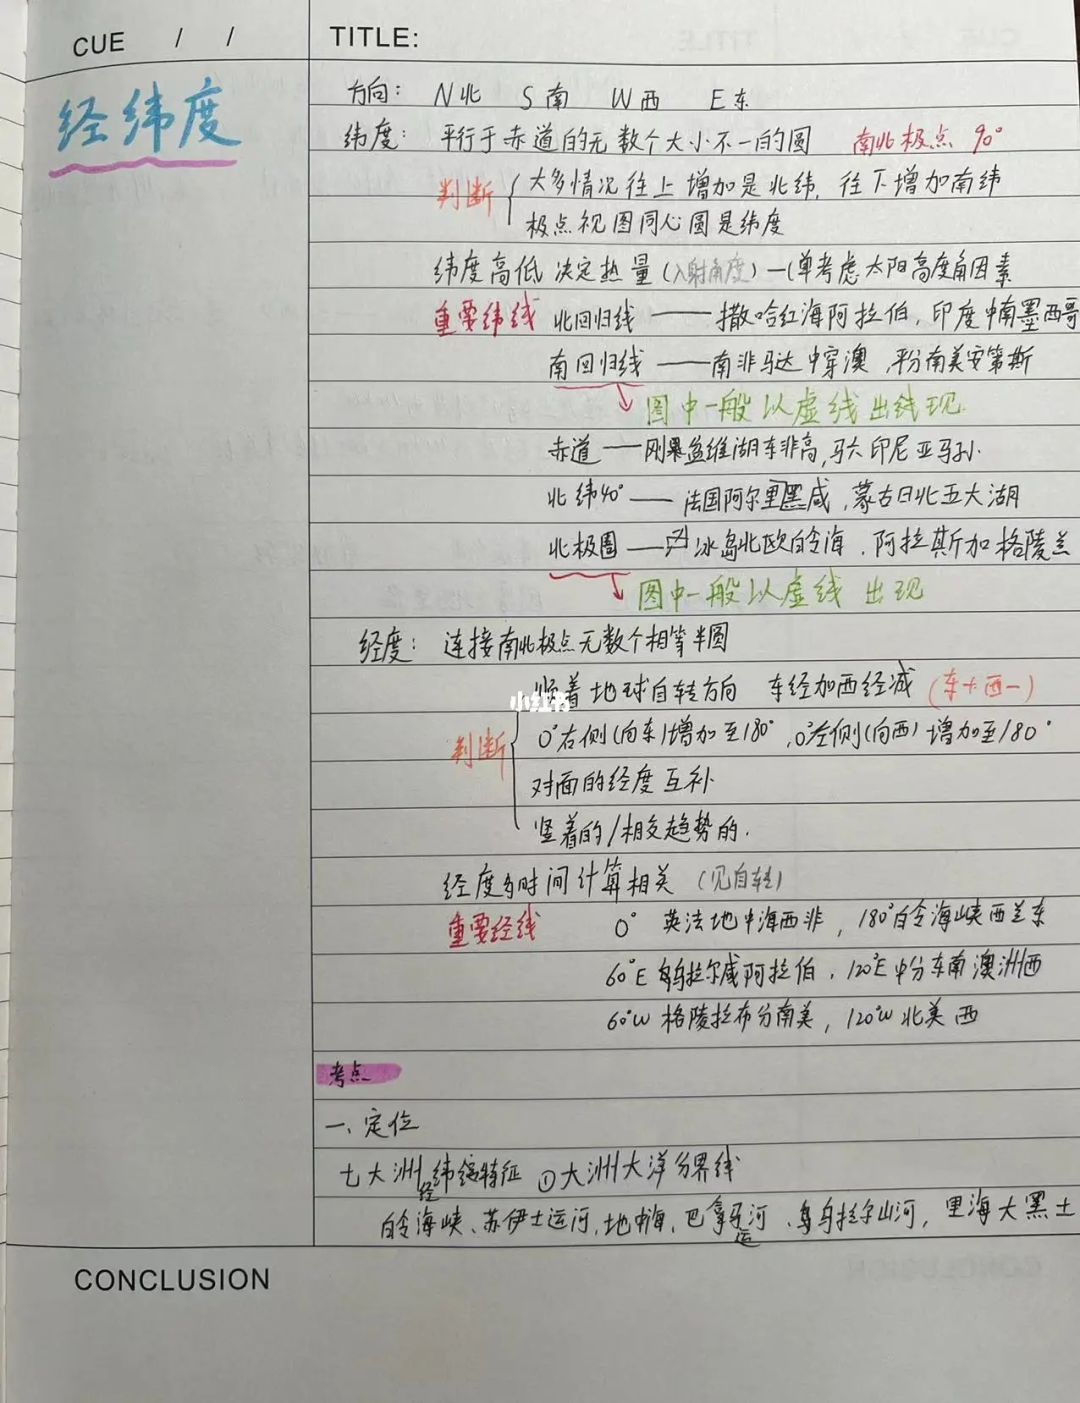 CUE / /
TITLE:
经纬度
方向： N北 S南 W西 E东
纬度： 平行于赤道的无数个大小不一的圆 南北极点 90°
判断 大多情况往上增加是北纬，往下增加南纬
极点视图同心圆是纬度
纬度高低决定热量（入射角度）—（单考虑太阳高度角因素
重要纬线 北回归线——撒哈红海阿拉伯，印度中南墨西哥
南回归线——南非马达中穿澳，平分南美安第斯
图中一般以虚线出线现
赤道——刚果盆维湖东非高，马六印尼亚马孙.
北纬40°——法国阿尔里黑咸，蒙古日北五大湖
北极圈——冰岛北欧白令海，阿拉斯加格陵兰
图中一般以虚线出现
经度： 连接南北极点无数个相等半圆
小红书
顺着地球自转方向 东经加西经减（东+西-）
判断 0°右侧(向东)增加至180°，0°左侧(向西)增加至180°
对面的经度互补
竖着的/相交趋势的.
经度与时间计算相关（见自转）
重要经线 0° 英法地中海西非，180°白令海峡西兰东
60°E 乌拉尔咸阿拉伯，120°E中分东南澳洲西
60°W 格陵拉布分南美，120°W北美西
考点
一、定位
七大洲经纬线特征 ①大洲大洋分界线
白令海峡、苏伊士运河、地中海、巴拿马运河、乌拉尔山河，里海大黑土
CONCLUSION